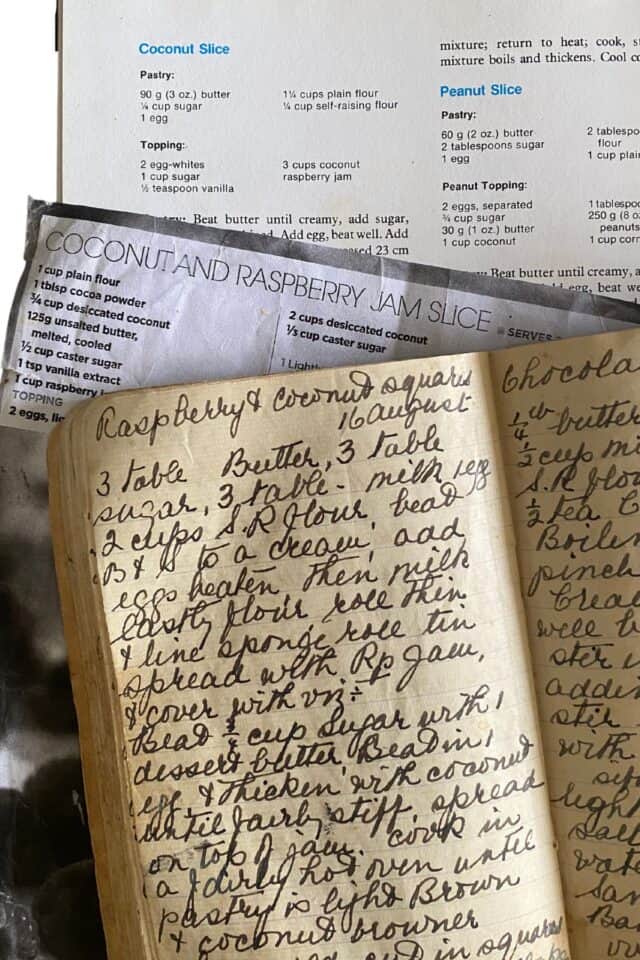 Coconut Slice
Pastry:
90 g (3 oz.) butter
¼ cup sugar
1 egg
1¼ cups plain flour
¼ cup self-raising flour
Topping:
2 egg-whites
1 cup sugar
½ teaspoon vanilla
3 cups coconut
raspberry jam
Beat butter until creamy, add sugar,
Add egg, beat well. Add
23 cm
mixture; return to heat; cook,
mixture boils and thickens. Cool
Peanut Slice
Pastry:
60 g (2 oz.) butter
2 tablespoons sugar
1 egg
flour
1 cup
Peanut Topping:
2 eggs, separated
¾ cup sugar
30 g (1 oz.) butter
1 cup coconut
250 g (8
peanuts
1 cup
Beat butter until creamy,
egg, beat
COCONUT AND RASPBERRY JAM SLICE SERVES
1 cup plain flour
1 tblsp cocoa powder
¾ cup desiccated coconut
125g unsalted butter,
melted, cooled
½ cup caster sugar
1 tsp vanilla extract
1 cup raspberry
TOPPING
2 eggs,
2 cups desiccated coconut
⅓ cup caster sugar
Raspberry & coconut squares
16 august
3 table Butter, 3 table
sugar, 3 table - milk 1 egg
2 cups S.R flour, bead
B & S to a cream, add
eggs beaten then milk
lastly flour, role thin
& line sponge role tin
spread with Rp Jam,
& cover with
Bead ½ cup sugar with 1
dessert butter, Bead in 1
egg, & thicken with coconut
until fairly stiff, spread
on top of jam. cook in
a fairly hot oven until
pastry is light Brown
& coconut browner
cut in squares
¼ lb butter
½ cup
S.R flour
½ tea
pinch
well
stir
with